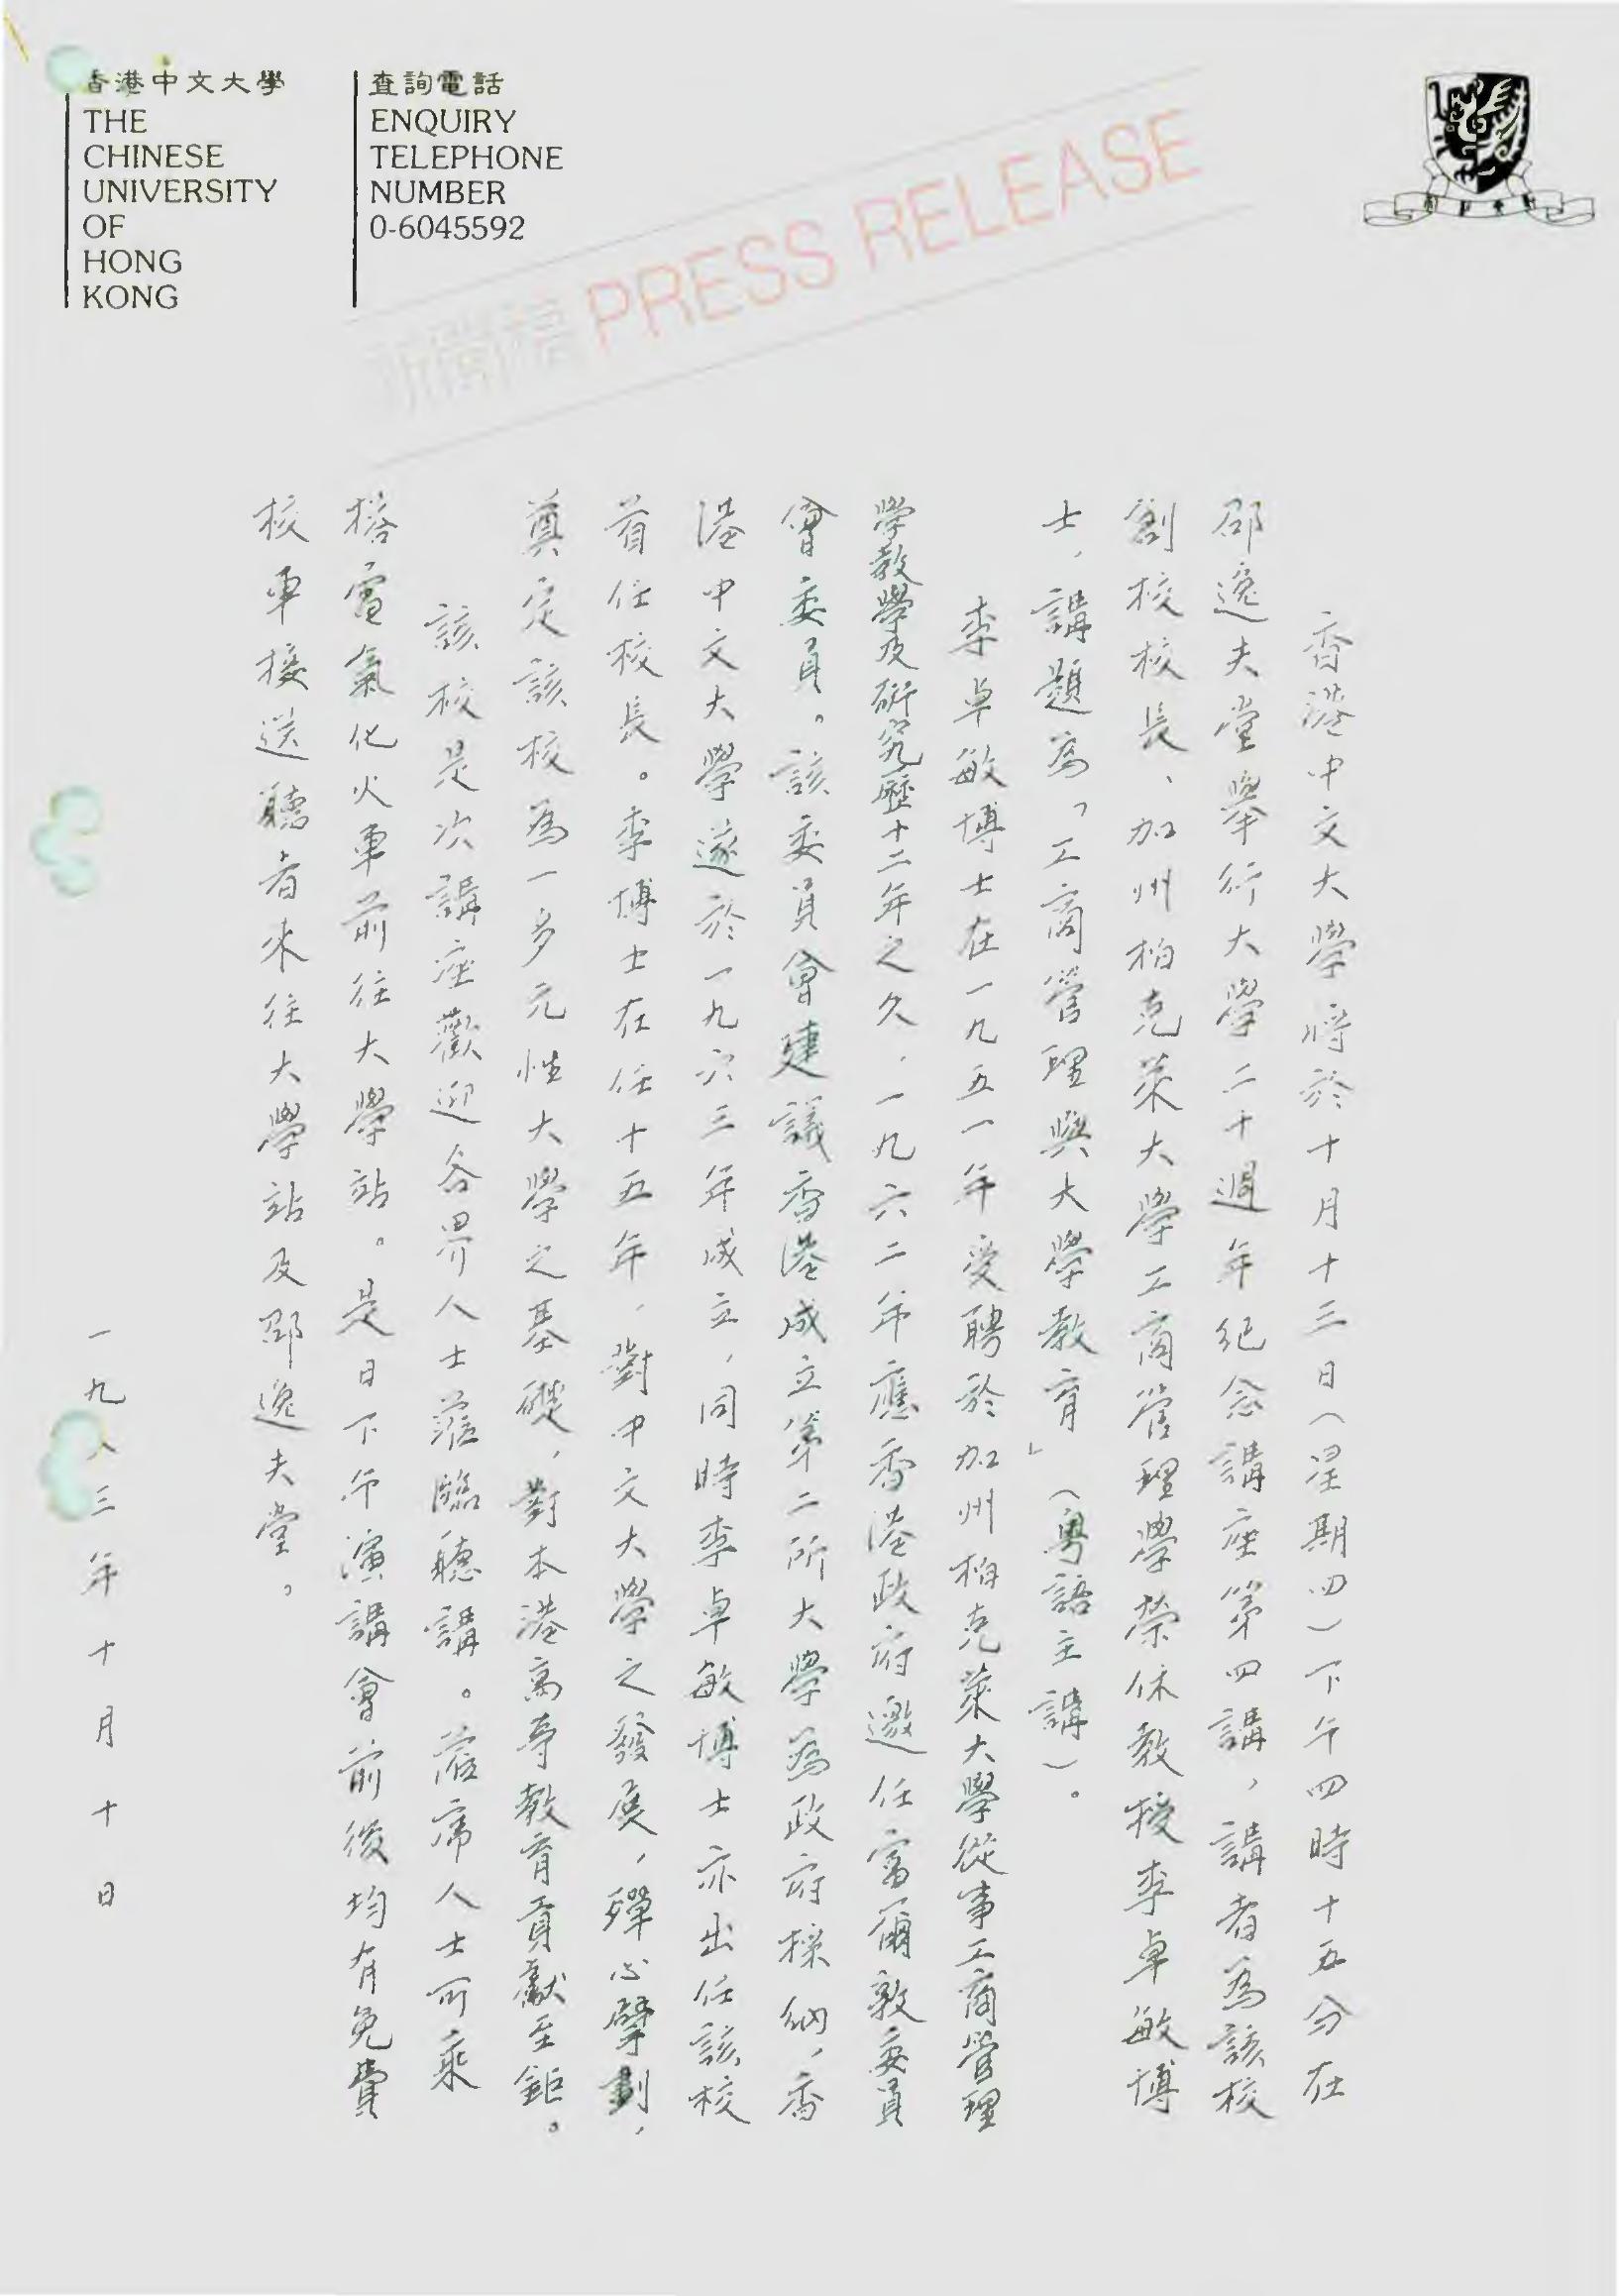 香港中文大學
THE
CHINESE
UNIVERSITY
OF
HONG
KONG
查詢電話
ENQUIRY
TELEPHONE
NUMBER
0-6045592
新聞稿 PRESS RELEASE
香港中文大學將於十月十三日(星期四)下午四時十五分在
邵逸夫堂舉行大學二十週年紀念講座第四講,講者為該校
創校校長、加州柏克萊大學工商管理學榮休教授李卓敏博
士,講題為「工商管理與大學教育」(粵語主講)。
李卓敏博士在一九五一年受聘於加州柏克萊大學從事工商管理
學教學及研究歷十二年之久,一九六二年應香港政府邀任富爾敦委員
會委員。該委員會建議香港成立第二所大學為政府採納,香
港中文大學遂於一九六三年成立,同時李卓敏博士亦出任該校
首任校長。李博士在任十五年,對中文大學之發展,殫心擘劃,
奠定該校為一多元性大學之基礎,對本港高等教育貢獻至鉅。
該校是次講座歡迎各界人士蒞臨聽講。蒞席人士可乘
搭電氣化火車前往大學站。是日下午演講會前後均有免費
校車接送聽者來往大學站及邵逸夫堂。
一九八三年十月十日